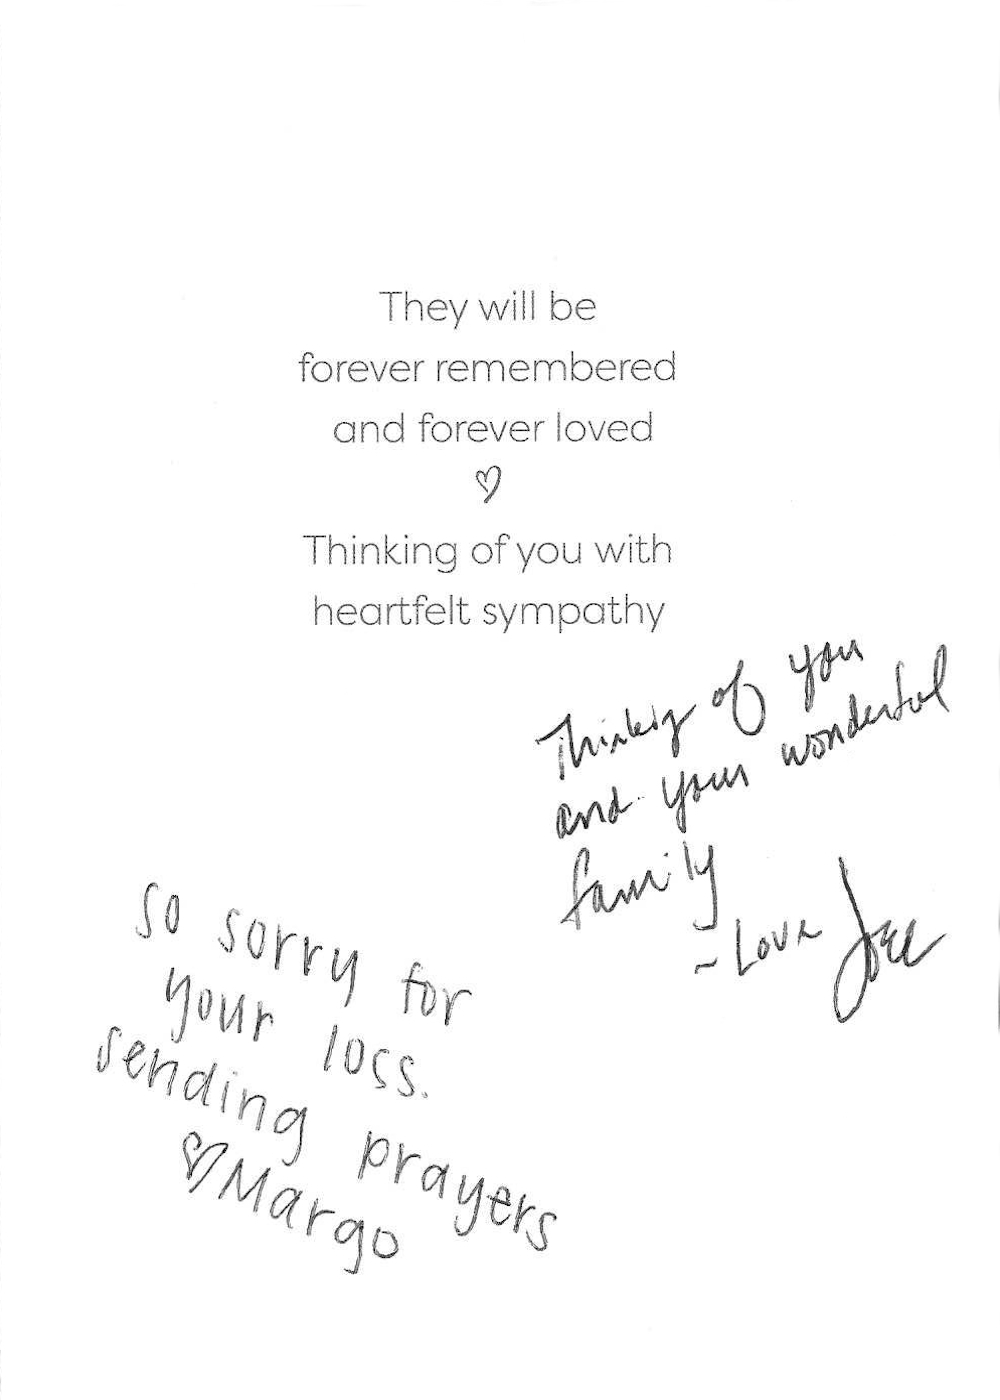 They will be
forever remembered
and forever loved
♡
Thinking of you with
heartfelt sympathy
Thinking of you
and your wonderful
family
~ Love Joee
so sorry for
your loss.
sending prayers
♡ Margo